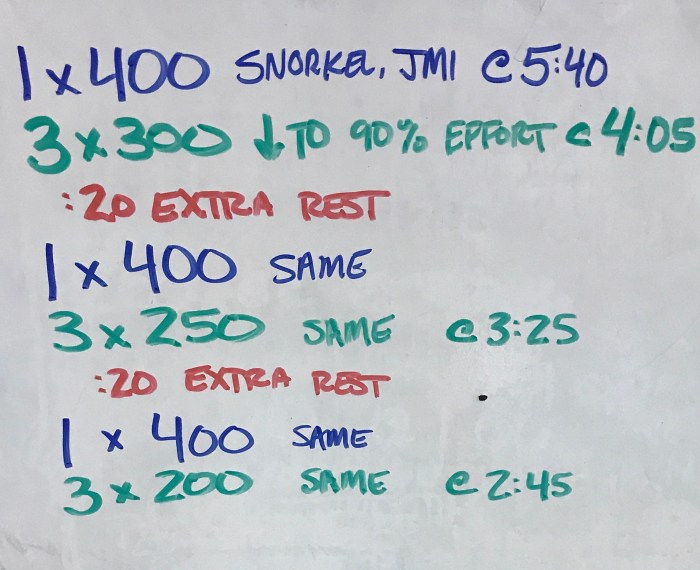 1 x 400 SNORKEL, JMI @ 5:40
3 x 300 ↓ TO 90% EFFORT @ 4:05
:20 EXTRA REST
1 x 400 SAME
3 x 250 SAME @ 3:25
:20 EXTRA REST
1 x 400 SAME
3 x 200 SAME @ 2:45